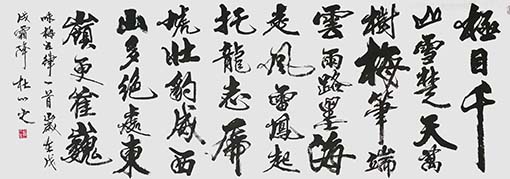 極目千
山雪楚天萬
樹梅筆端
雲雨路墨海
走風雷鳳起
托龍志
壯豹威西
山多絕處東
嶺更崔巍
咏梅五律一首歲在戊
戌霜降杜